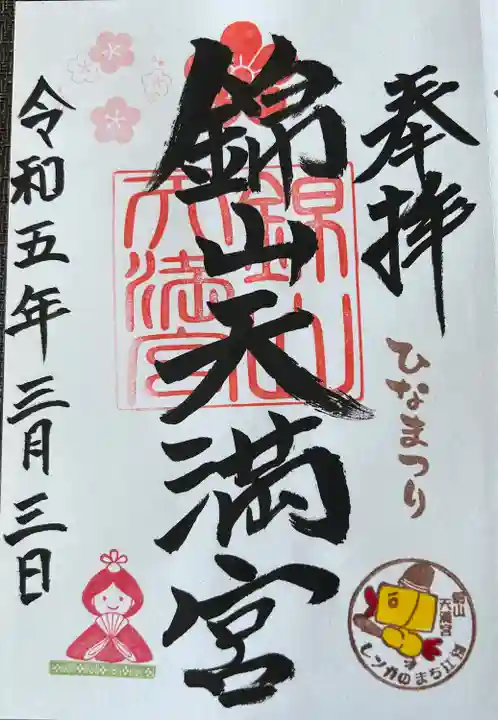 奉拝
ひなまつり
錦山天満宮
錦山
天満宮
令和五年三月三日
錦山
天満宮
レンガのまち江別